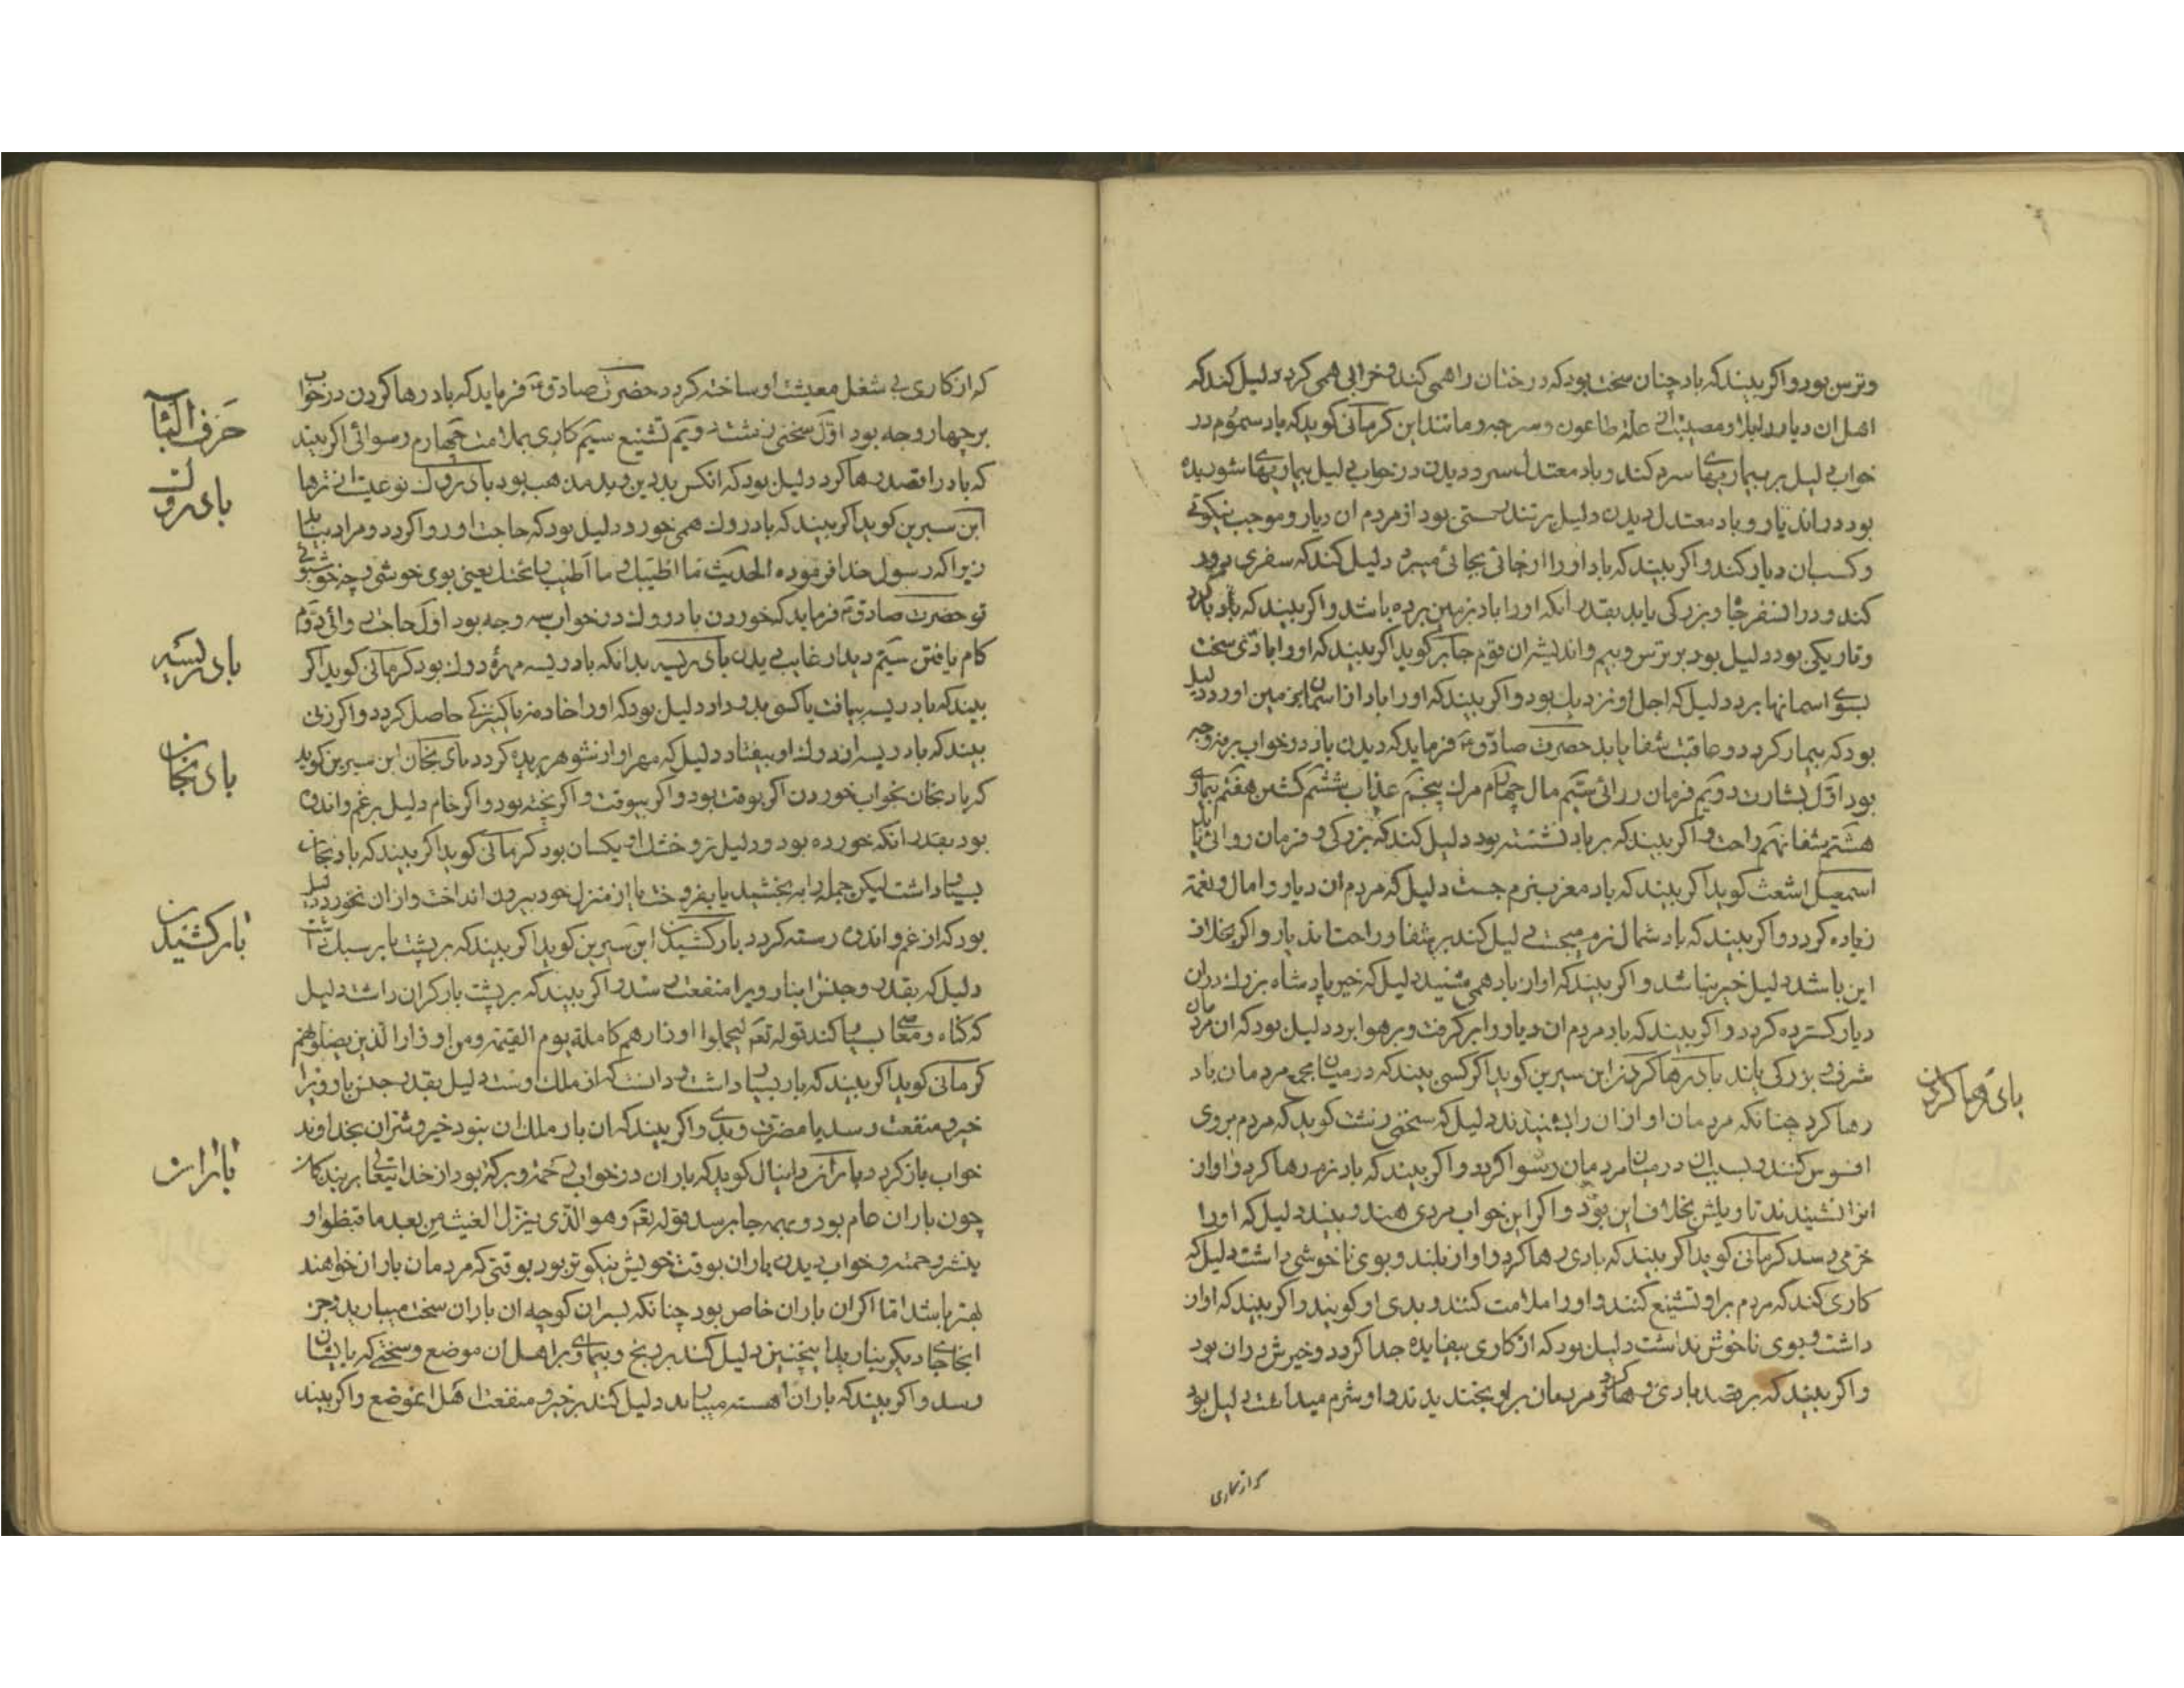 وترس بود و اکر بیند که باد چنان سخت بود که درختان را همی کند و خرابی همی کرد دلیل کند که
اهل ان دیار را بلا و مصیبت از علة طاعون و سرجه و مانند این کرمانی کوید که باد سموم در
خواب دلیل بر بیماریهای سرد کند و باد معتدل سرد دیدن در خواب دلیل بیماریهای شوریده
بود در اندیار و باد معتدل دیدن دلیل بر تندرستی بود از مردم ان دیار و موجب نیکوئی
وکسب ان دیار کند و اکر بیند که باد او را از جائی بجائی میبرد دلیل کند که سفری دور
کند و در انسفر جا و بزرکی یابد بقدر انکه او را باد بر زمین برده باشد و اکر بیند که باد با کرد
و تاریکی بود دلیل بود بر ترس و بیم و اندیشه ان قوم جابر کوید اکر بیند که او را بادی سخت
بسوی اسمانها برد دلیل که اجل او نزدیک بود و اکر بیند که او را باد از اسمان بزمین اورد دلیل
بود که بیمار کردد و عاقبت شفا یابد حضرت صادق فرماید که دیدن باد در خواب بر نه وجه
بود اول بشارت دویم فرمان روائی سیم مال چهارم مرک پنجم عذاب ششم کشتن هفتم بیماری
هشتم شفا نهم راحت و اکر بیند که بر باد نشسته بود دلیل کند که بزرکی و فرمان روائی یابد
اسمعیل اشعث کوید اکر بیند که باد مغرب نرم جست دلیل که مردم ان دیار را مال و نعمة
زیاده کردد و اکر بیند که باد شمال نرم میجست دلیل کند بر شفا و راحت اندیار و اکر بخلاف
این باشد دلیل خیر نباشد و اکر بیند که اواز باد همی شنید دلیل که خبر پادشاه بزرک دران
دیار کسترده کردد و اکر بیند که باد مردم ان دیار را بر کرفت و بر هوا برد دلیل بود که ان مردمان
شرف و بزرکی یابند باد رها کردن ابن سیرین کوید اکر کسی بیند که در میان جمع مردمان باد
رها کرد چنانکه مردمان اواز ان را بشنیدند دلیل که سخنی زشت کوید که مردم بر وی
افسوس کنند و بسبب ان در میان مردمان رسوا کردد و اکر بیند که باد نرم رها کرد و اواز
انرا نشنیدند تاویلش بخلاف این بود و اکر این خواب مردی هندو بیند دلیل که او را
خرمی رسد کرمانی کوید اکر بیند که بادی رها کرد و اواز بلند و بوی ناخوشی داشت دلیل که
کاری کند که مردم بر او تشنیع کنند و او را ملامت کنند و بدی او کویند و اکر بیند که اواز
داشت و بوی ناخوش نداشت دلیل بود که از کاری بیفایده جدا کردد و خیرش دران بود
واکر بیند که بر قصد بادی رها کرد و مردمان بر او بخندیدند و او شرم میداشت دلیل بود
که از کاری
باد رها کردن
که از کاری بی شغل معیشت او ساخته کردد حضرت صادق فرماید که باد رها کردن در خواب
بر چهار وجه بود اول سخنی زشت دویم تشنیع سیم کاری بملامت چهارم رسوائی اکر بیند
که باد را بقصد رها کرد دلیل بود که انکس بد دین و بد مذهب بود بادروک نوعیت از ترها
ابن سیرین کوید اکر بیند که بادروک همی خورد دلیل بود که حاجت او روا کردد و مراد بیابد
زیرا که رسول خدا فرموده الحدیث ما اطیبک و ما اطیب ریحک یعنی بوی خوشی و چه خوشبوئی
تو حضرت صادق فرماید که خوردن بادروک در خواب سه وجه بود اول حاجت روائی دویم
کام یافتن سیم دیدار غایب دیدن بادریسه بدانکه بادریسه مهرهٔ دوک بود کرمانی کوید اکر
بیند که بادریسه بیافت یا کسی بدو داد دلیل بود که او را خادمه یا کنیزکی حاصل کردد و اکر زنی
بیند که بادریسه از دوک او بیفتاد دلیل که مهر او از شوهر بریده کردد بادنجان ابن سیرین کوید
که بادنجان بخواب خوردن اکر بوقت بود و اکر بیوقت و اکر پخته بود و اکر خام دلیل بر غم و اندوه
بود بقدر انکه خورده بود و دلیل تر و خشک او یکسان بود کرمانی کوید اکر بیند که بادنجان
بسیار داشت لیکن جمله را به بخشید یا بفروخت یا از منزل خود بیرون انداخت و از ان نخورد دلیل
بود که از غم و اندوه رسته کردد بار کشیدن ابن سیرین کوید اکر بیند که بر پشت بار سبک داشت
دلیل که بقدر و جنس انبار ویرا منفعت رسد و اکر بیند که بر پشت بار کران داشت دلیل
که کناه و معاصی بسیار کند قوله تعم لیحملوا اوزارهم کاملة یوم القیمة ومن اوزار الذین یضلونهم
کرمانی کوید اکر بیند که بار بسیار داشت و دانست که از ملک اوست دلیل بقدر جنس بار ویرا
خیر و منفعت رسد یا مضرت و بدی و اکر بیند که ان بار ملک ان نبود خیر و شر ان بخداوند
خواب باز کردد باران دانیال کوید که باران در خواب رحمة و برکة بود از خدایتعالی بر بندکان
چون باران عام بود و بهمه جا برسد قوله تعم وهو الذی ینزل الغیث من بعد ما قنطوا و
ینشر رحمته و خواب دیدن باران بوقت خویش نیکوتر بود بوقتی که مردمان باران خواهند
بهتر باشد اما اکر ان باران خاص بود چنانکه بسرای کوچه ان باران سخت میبارید و جز
انجا جای دیکر نبارید اینچنین دلیل کند بر رنج و بیماری بر اهل ان موضع و سختی که بایشان
رسد و اکر بیند که باران اهسته میبارید دلیل کند بر خیر و منفعت اهل انموضع و اکر بیند
حرف البا
بادروک
بادریسه
بادنجان
بار کشیدن
باران